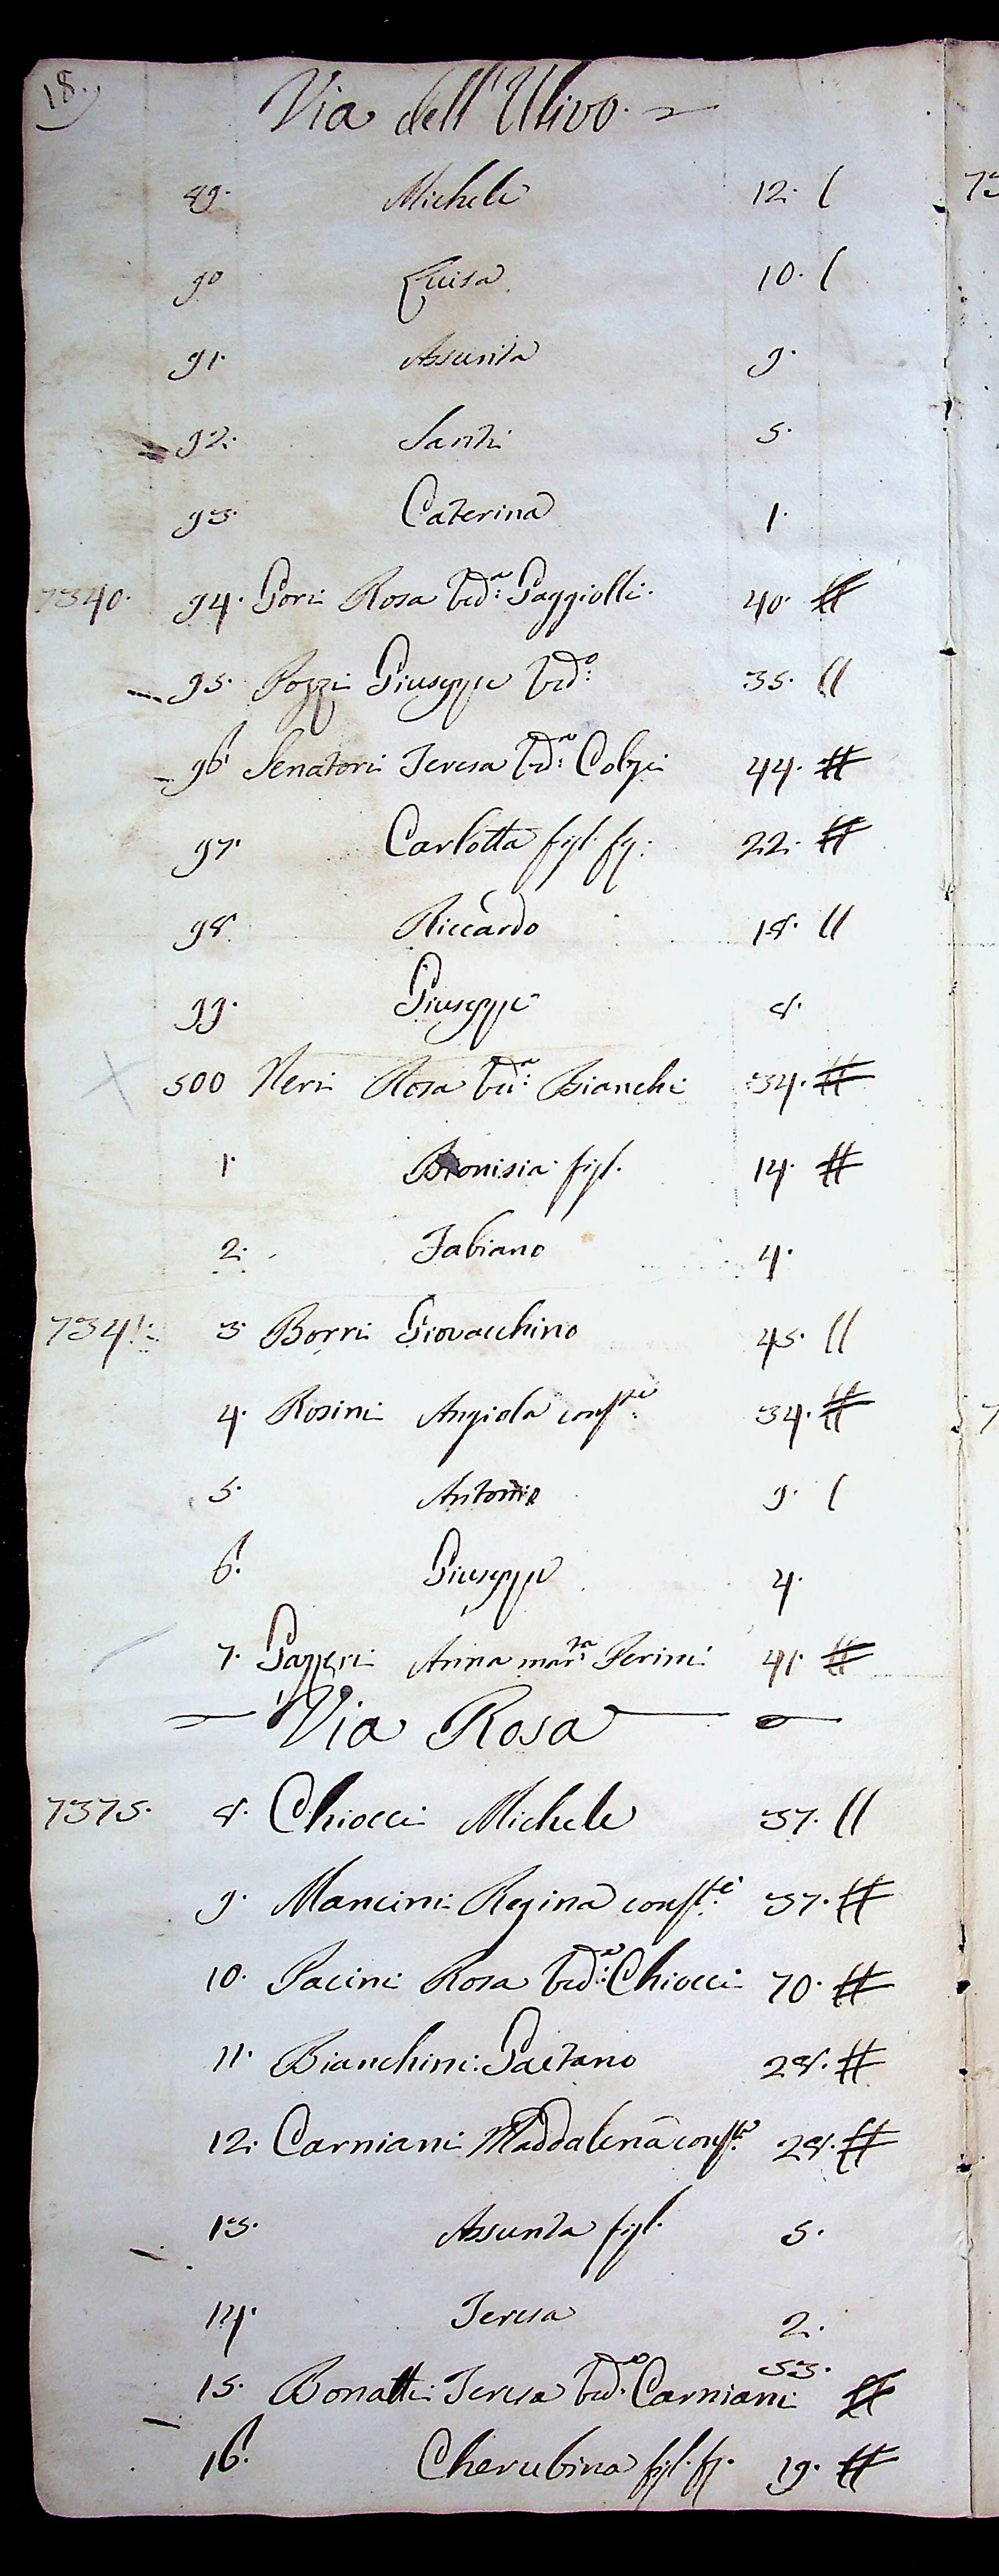 18.
Via dell'Ulivo.
89. Michele 12. (
90 Luisa 10. (
91. Assunta 9.
92. Santi 5.
93. Caterina 1.
7340. 94. Gori Rosa ved:ᵃ Gaggiolli. 40. #
95. Pozzi Giuseppe ved:ᵒ 35. //
96 Senatori Teresa vd:ᵃ Colzi 44. #
97. Carlotta figl. fg: 22. #
98 Riccardo 18. //
99. Giuseppe 8.
500 Neri Rosa ved:ᵃ Bianchi 34. #
1. Dionisia figl. 14. #
2. Fabiano 4.
7341: 3 Borri Giovacchino 45. //
4. Rosini Angiola consᵗᵉ: 34. #
5. Antonio 9. (
6. Giuseppe 4.
7. Gazzeri Anna marᵗᵃ: Ferini 41. #
Via Rosa
7375. 8. Chiocci Michele 37. //
9. Mancini Regina consᵗᵉ. 37. #
10. Pacini Rosa ved:ᵃ Chiocci 70. #
11. Bianchini Gaetano 28. #
12. Carniani Maddalena consᵗᵉ. 28. #
13. Assunta figl. 5.
14. Teresa 2.
15. Bonatti Teresa ved.ᵃ Carniani 53. #
16. Cherubina figl. fg. 19. #